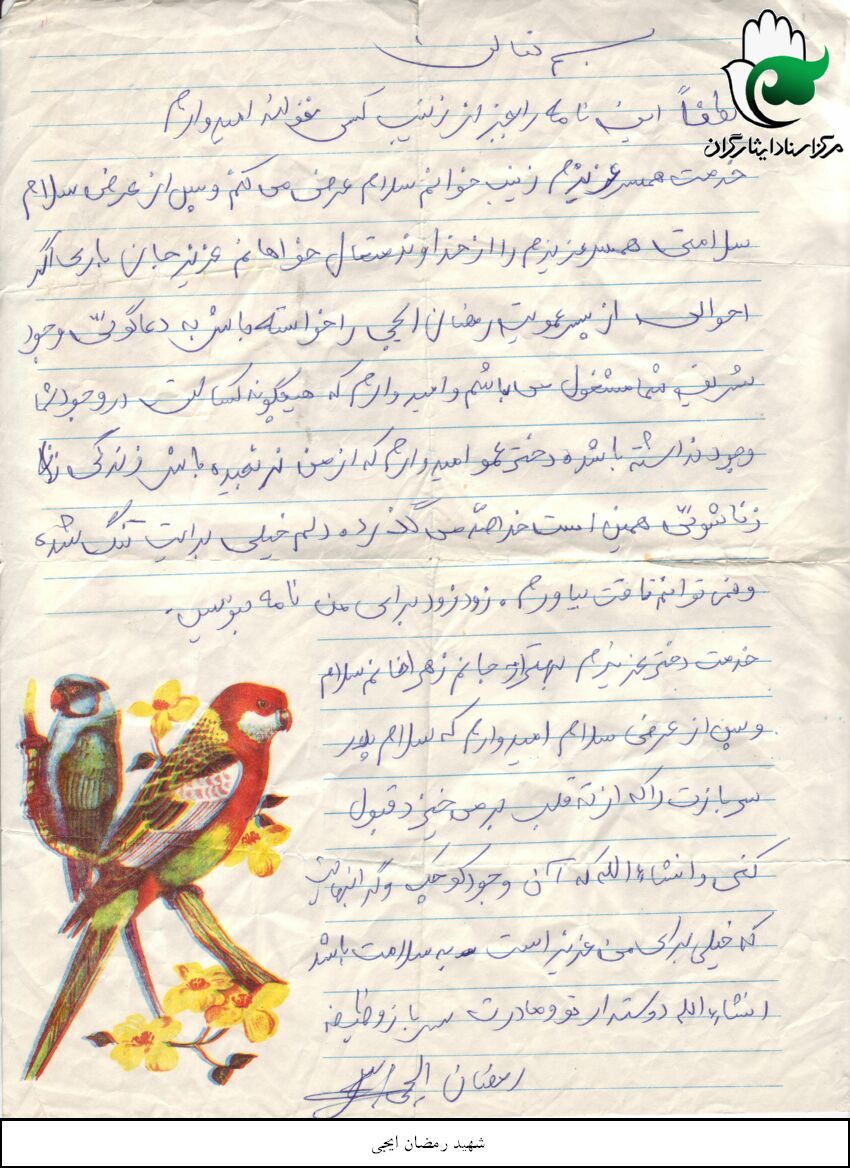 بسم تعالی
لطفاً این نامه را بجز از زینب کس نخواند امیدوارم
مرکز اسناد ایثارگران
خدمت همسر عزیزم زینب خوانم سلام عرض می کنم و پس از عرض سلام
سلامتی همسر عزیزم را از خداوند متعال خواهانم عزیز جان باری اگر
احوالی از پسر عمویت رمضان ایجی را خواسته باش به دعاگوئی وجود
شریف شما مشغول می باشم و امیدوارم که هیچگونه کسالت در وجود شما
وجود نداشته باشد دختر عمو امیدوارم که از من نرنجیده باش زندگی
زناشوئی همین است خداصه می گذرد دلم خیلی برایت تنگ شده
و نمی توانم تاقت بیاورم . زود زود برای من نامه بنویس.
خدمت دختر عزیزم بهتر از جانم زهرا خانم سلام
و پس از عرض سلام امیدوارم که سلام پدر
سربازت را که از ته قلب بر می خیزد قبول
کنی و انشاءالله که آن وجود کوچک و گرانبهایت
که خیلی برای من عزیز است به سلامت باشد
انشاءالله دوستدار تو و مادرت سرباز وظیفه
رمضان ایجی
شهید رمضان ایجی